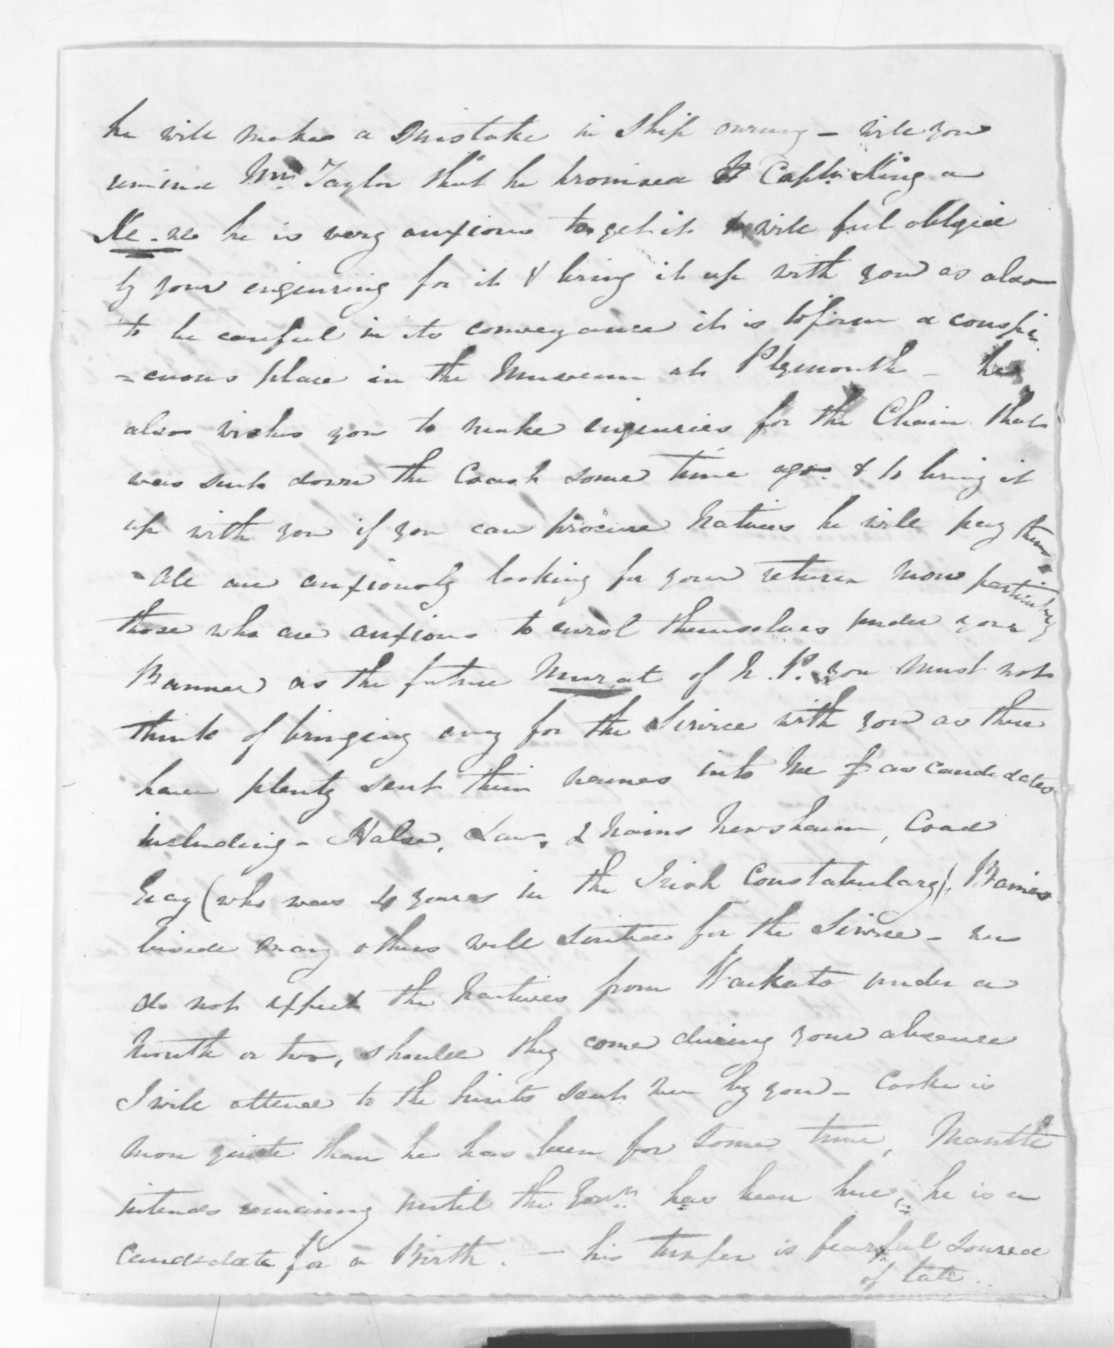 he will make a Mistake in Ship owning – will you
remind Mr. Taylor that he promised Captn. King a
he is very anxious to get it & will feel obliged
by your enquiring for it & bring it up with you as also
to be careful in its conveyance it is to form a conspi
=cuous place in the Museum at Plymouth – he
also wishes you to make enquiries for the Chain that
was sent down the Coast some time ago. & to bring it
up with you if you can procure Natives he will pay them
All are anxiously looking for your return more particularly
those who are anxious to enrol themselves under your
Banner as the future Murat of N. P. you must not
think of bringing any for the Service with you as three
have plenty sent their names into me as candidates
including – Halse, Law, & Newsham, Coad
(who was 4 years in the Irish Constabulary),
beside many others well suited for the Service – we
do not expect the Natives from Waikato under a
Month or two, should they come during your absence
I will attend to the hints sent me by you – Cooke is
more quiet than he has been for some time,
intends remaining until the Govr. has been here, he is a
candidate for a Birth. – his temper is fearful soured
of late..